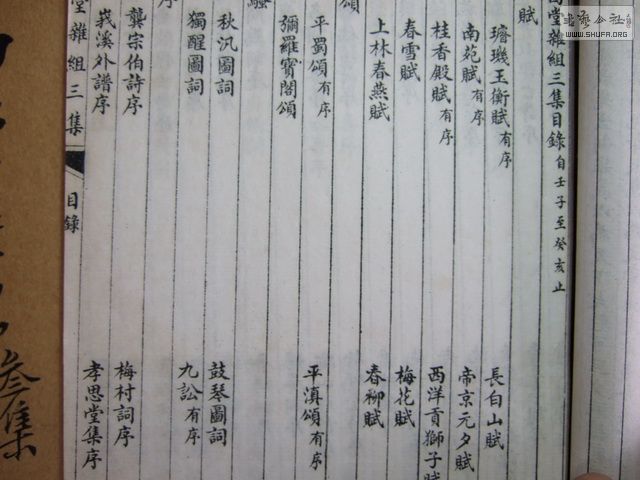 堂雜組三集目錄 自壬子至癸亥止
賦
璿璣玉衡賦有序 長白山賦
南苑賦有序 帝京元夕賦
桂香殿賦有序 西洋貢獅子賦
春雪賦 梅花賦
上林春燕賦 春柳賦
頌
平蜀頌有序 平滇頌有序
彌羅寶閣頌
騷
秋汎圖詞 鼓琴圖詞
獨醒圖詞 九訟有序
序
龔宗伯詩序 梅村詞序
莪溪外譜序 孝思堂集序
堂雜組三集 目錄
叁集
WWW.SHUFA.ORG